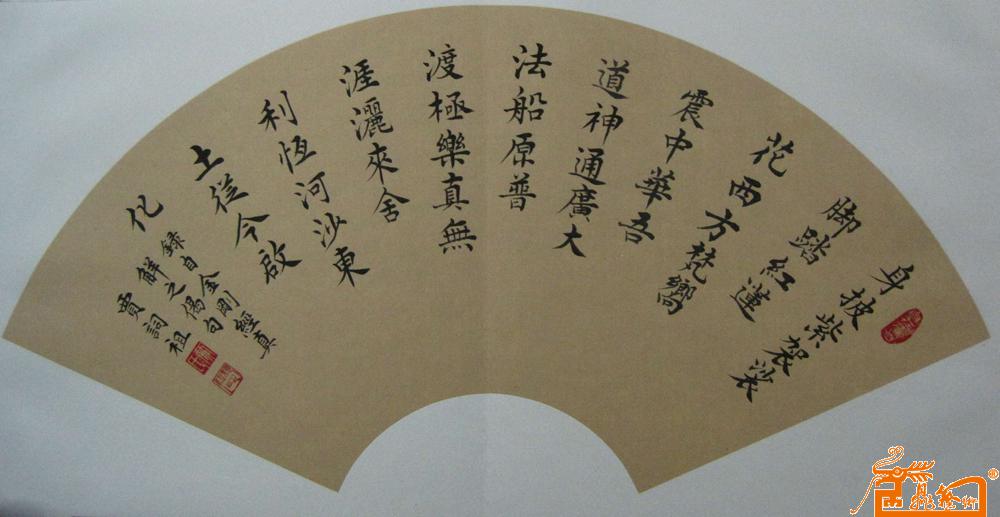 身披紫袈裟
脚踏紅蓮
花西方梵嚮
震中華吾
道神通廣大
法船原普
渡極樂真無
涯灑來舍
利恆河沙東
土從今啟
化
録自金剛經真
解之偈句
賈詞祖